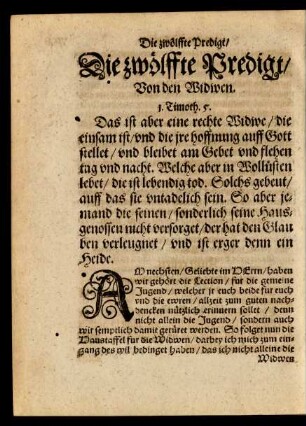 Die zwölffte Predigt/
Die zwölffte Predigt/
Von den Widwen.
1. Timoth. 5.
Das ist aber eine rechte Widwe/die
einsam ist/vnd die jre hoffnung auff Gott
stellet/vnd bleibet am Gebet vnd flehen
tag vnd nacht. Welche aber in Wollüsten
lebet/die ist lebendig tod. Solchs gebeut/
auff das sie vntadelich sein. So aber je-
mand die seinen/sonderlich seine Haus-
genossen nicht versorget/der hat den Glau
ben verleugnet/vnd ist erger denn ein
Heide.
AM nechsten/Geliebte im HErrn/haben
wir gehört die Lection/für die gemeine
Jugend/welcher jr euch beide für euch
vnd die ewren/allzeit zum guten nach-
dencken nützlich erinnern sollet/denn
nicht allein die Jugend/sondern auch
wir semptlich damit gerüret werden. So folget nun die
Haustaffel für die Widwen/darbey ich mich zum ein-
gang des wil bedinget haben/das ich nicht alleine die
Widwen